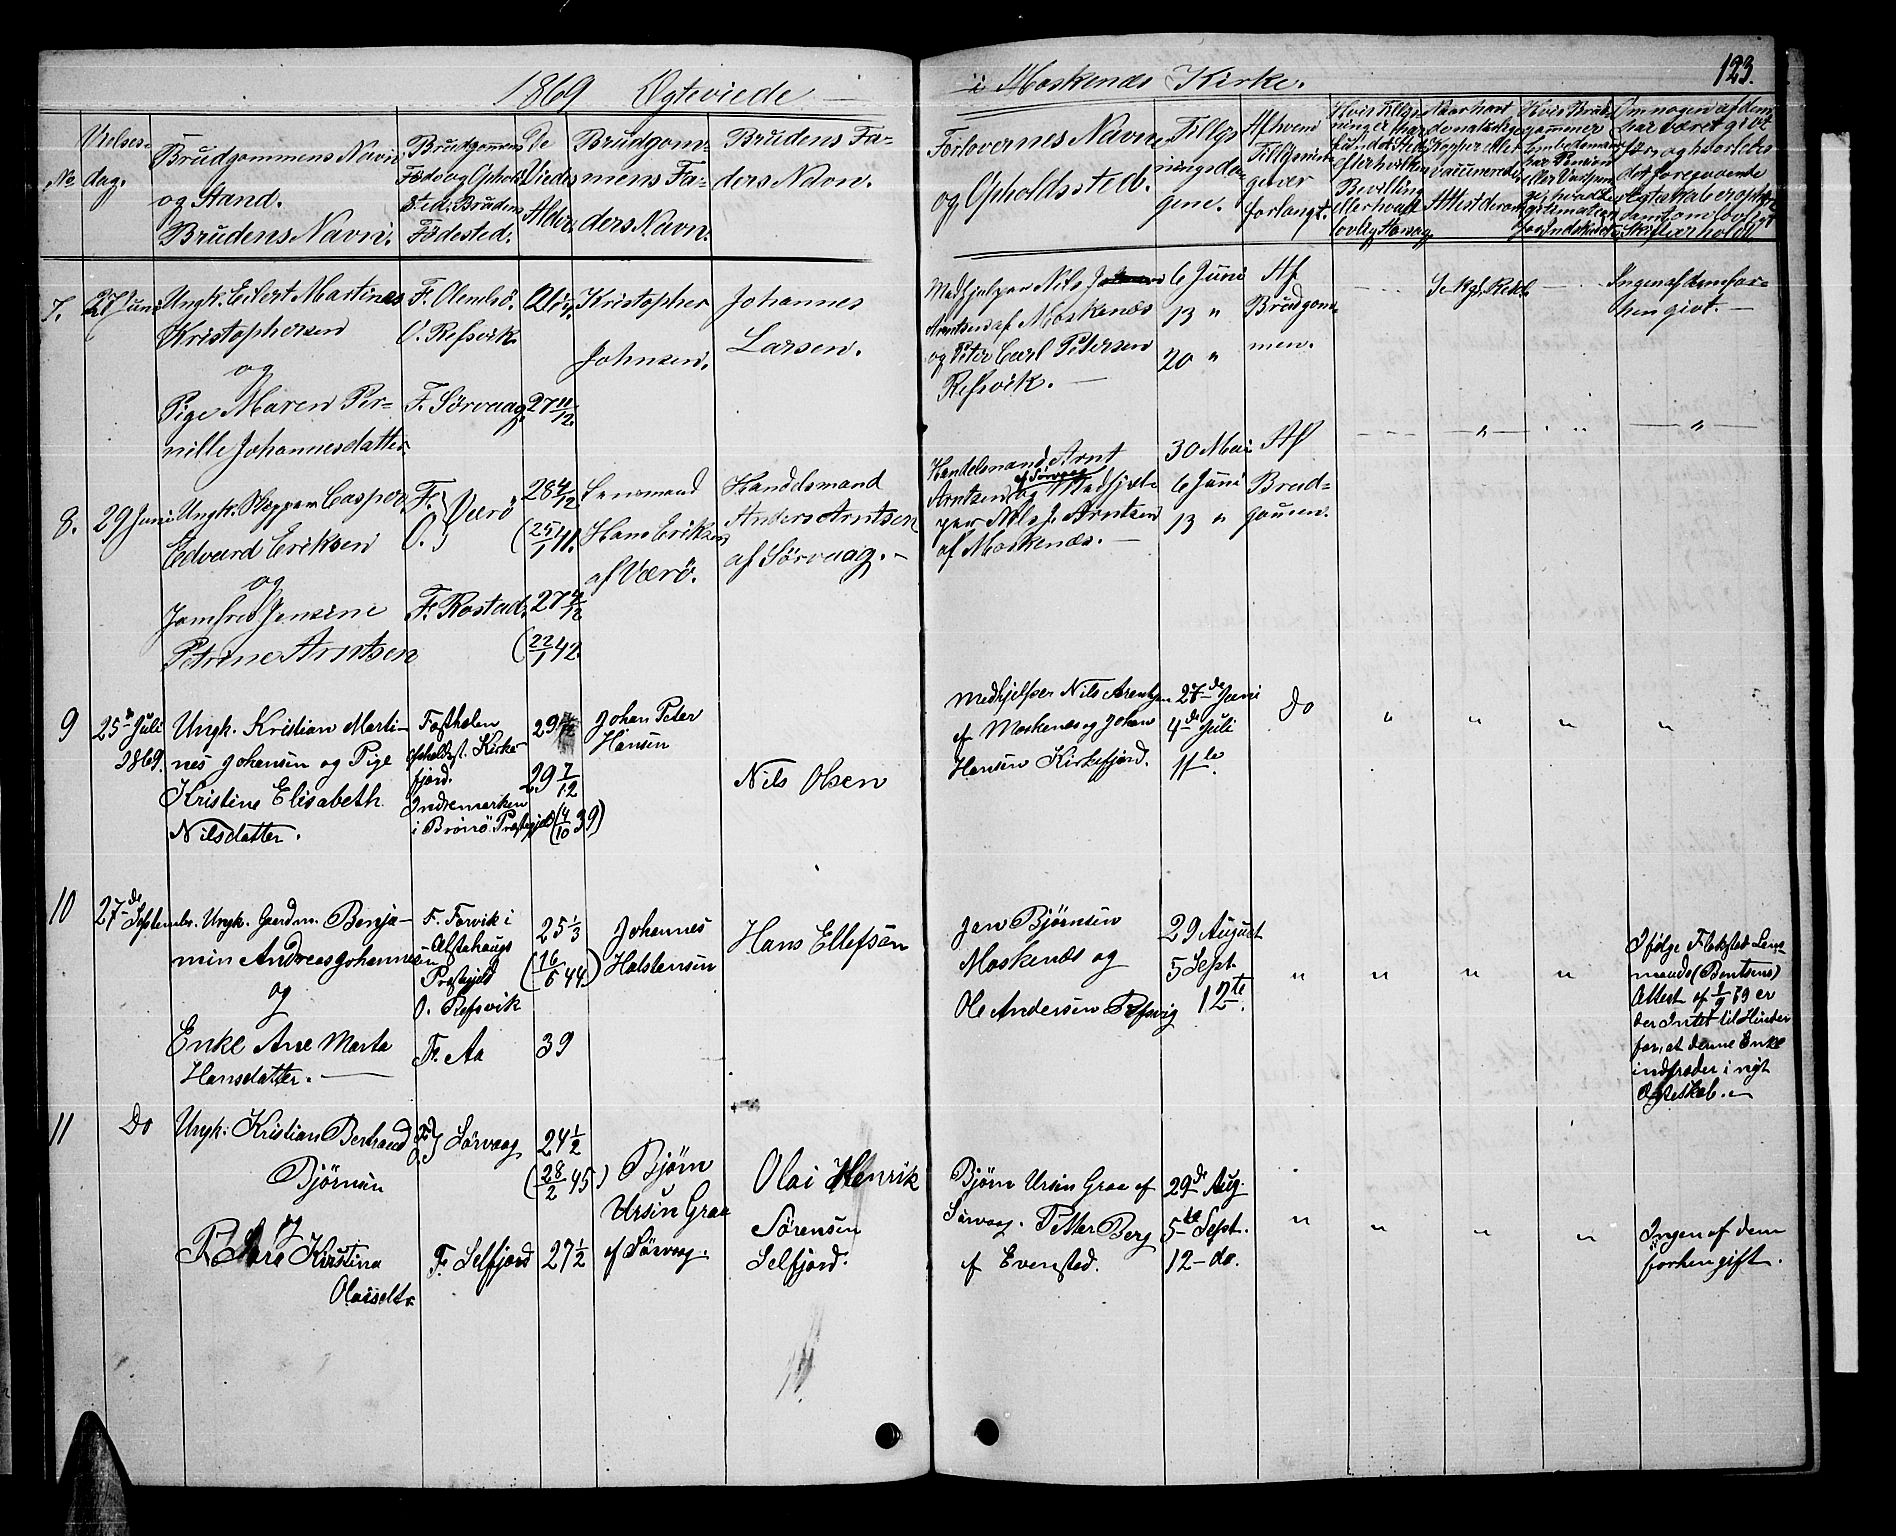 1869 Ægteviede
i Moskenæs Kirke.
123.
No
Vielses-
dag.
Brudgommens Navn
og Stand.
Brudens Navn.
Brudgommens
Føde og Ophold
sted. Brudens
Födested.
De
Viedes
Alder.
Brudgom-
mens Fa-
ders Navn.
Brudens Fa-
ders Navn.
Forlovernes Navne
og Opholdssted.
Tillys
ningsda-
gene.
Af hvem
Tillysnin-
gen er
forlangt.
7.
27 Juni
Ungk. Eilert Martines
Kristophersen
og
Pige Maren Per-
nille Johannesdatter
O. Refsvik.
F. Sörvaag.
27 11/12.
Kristopher
Johnsen.
Johannes
Larsen.
Medhjelper Nils
Arntsen af Moskenæs
og Peter Carl Petersen
Refsvik. —
6 Juni
13 "
20 "
Af
Brudgom-
men.
Ingen af dem for-
hen givt. —
8.
29 Juni
Ungk. Skipper Casper
Edvard Eriksen
og
Jomfru Jensine
Petrine Arntsen
F.
O. } Værö
F. Rostad.
28 4/12
(25/1 41.
27 4/12
(22/1 42.
Lensmand
Hans Eriksen
af Værö.
Handelsmand
Anders Arntsen
af Sörvaag. —
Handelsmand Arnt
Arntsen af Sörvaag og Medhjel-
per Nils J. Arntsen
af Moskenæs. —
30 Mai
6 Juni
13 "
Af
Brud-
gommen.
— " — " — " —
9
25de Juli
1869.
Ungk. Kristian Marti-
nes Johansen og Pige
Kristine Elisabeth
Nilsdatter.
Opholdsst. Kirke-
fjord.
Indremarken
i Brönö Præstegjeld
29
29 7/12
(4/10 39)
Johan Peter
Hansen
Nils Olsen
Medhjelper Nils Arentzen
af Moskenæs og Johan
Hansen Kirkefjord.
27de Juni
4de Juli
11te.
Do
" " " "
10
27de
September.
Ungk. Gaardm. Benja-
min Andreas Johannesen
og
Enke Ane Marta
Hansdatter. —
F. Forvik i
Alstahaugs
Præstegjeld
O. Refsvik
F. Aa
25 1/3
(16/5 44)
39
Johannes
Holstensen
Hans Ellefsen
Jon Bjørnsen
Moskenæs og
Ole Andersen Refsvig
29 August
5 Sept.
12te
" " " "
Ifølge Flakstad Lens-
mands (Bentsens)
Attest af 2/9 69 er
der Intet til Hinder
for, at denne Enke
indtræder i nyt
Ægteskab. —
11
Do
Ungk. Kristian Bertrand
Bjørnsen
og
Kirstina
Olaisdtr
Sörvaag
F. Selfjord
24 1/2
(28/2 45)
27 1/2
Bjørn
Ursin Graa
af Sörvaag.
Olai Henrik
Sörensen
Selfjord.
Bjørn Ursin Graa af
Sörvaag. Petter Berg
af Evenstad.
29de Aug.
5te Sept.
12 – do.
" " " "
Ingen af dem
forhen gift.